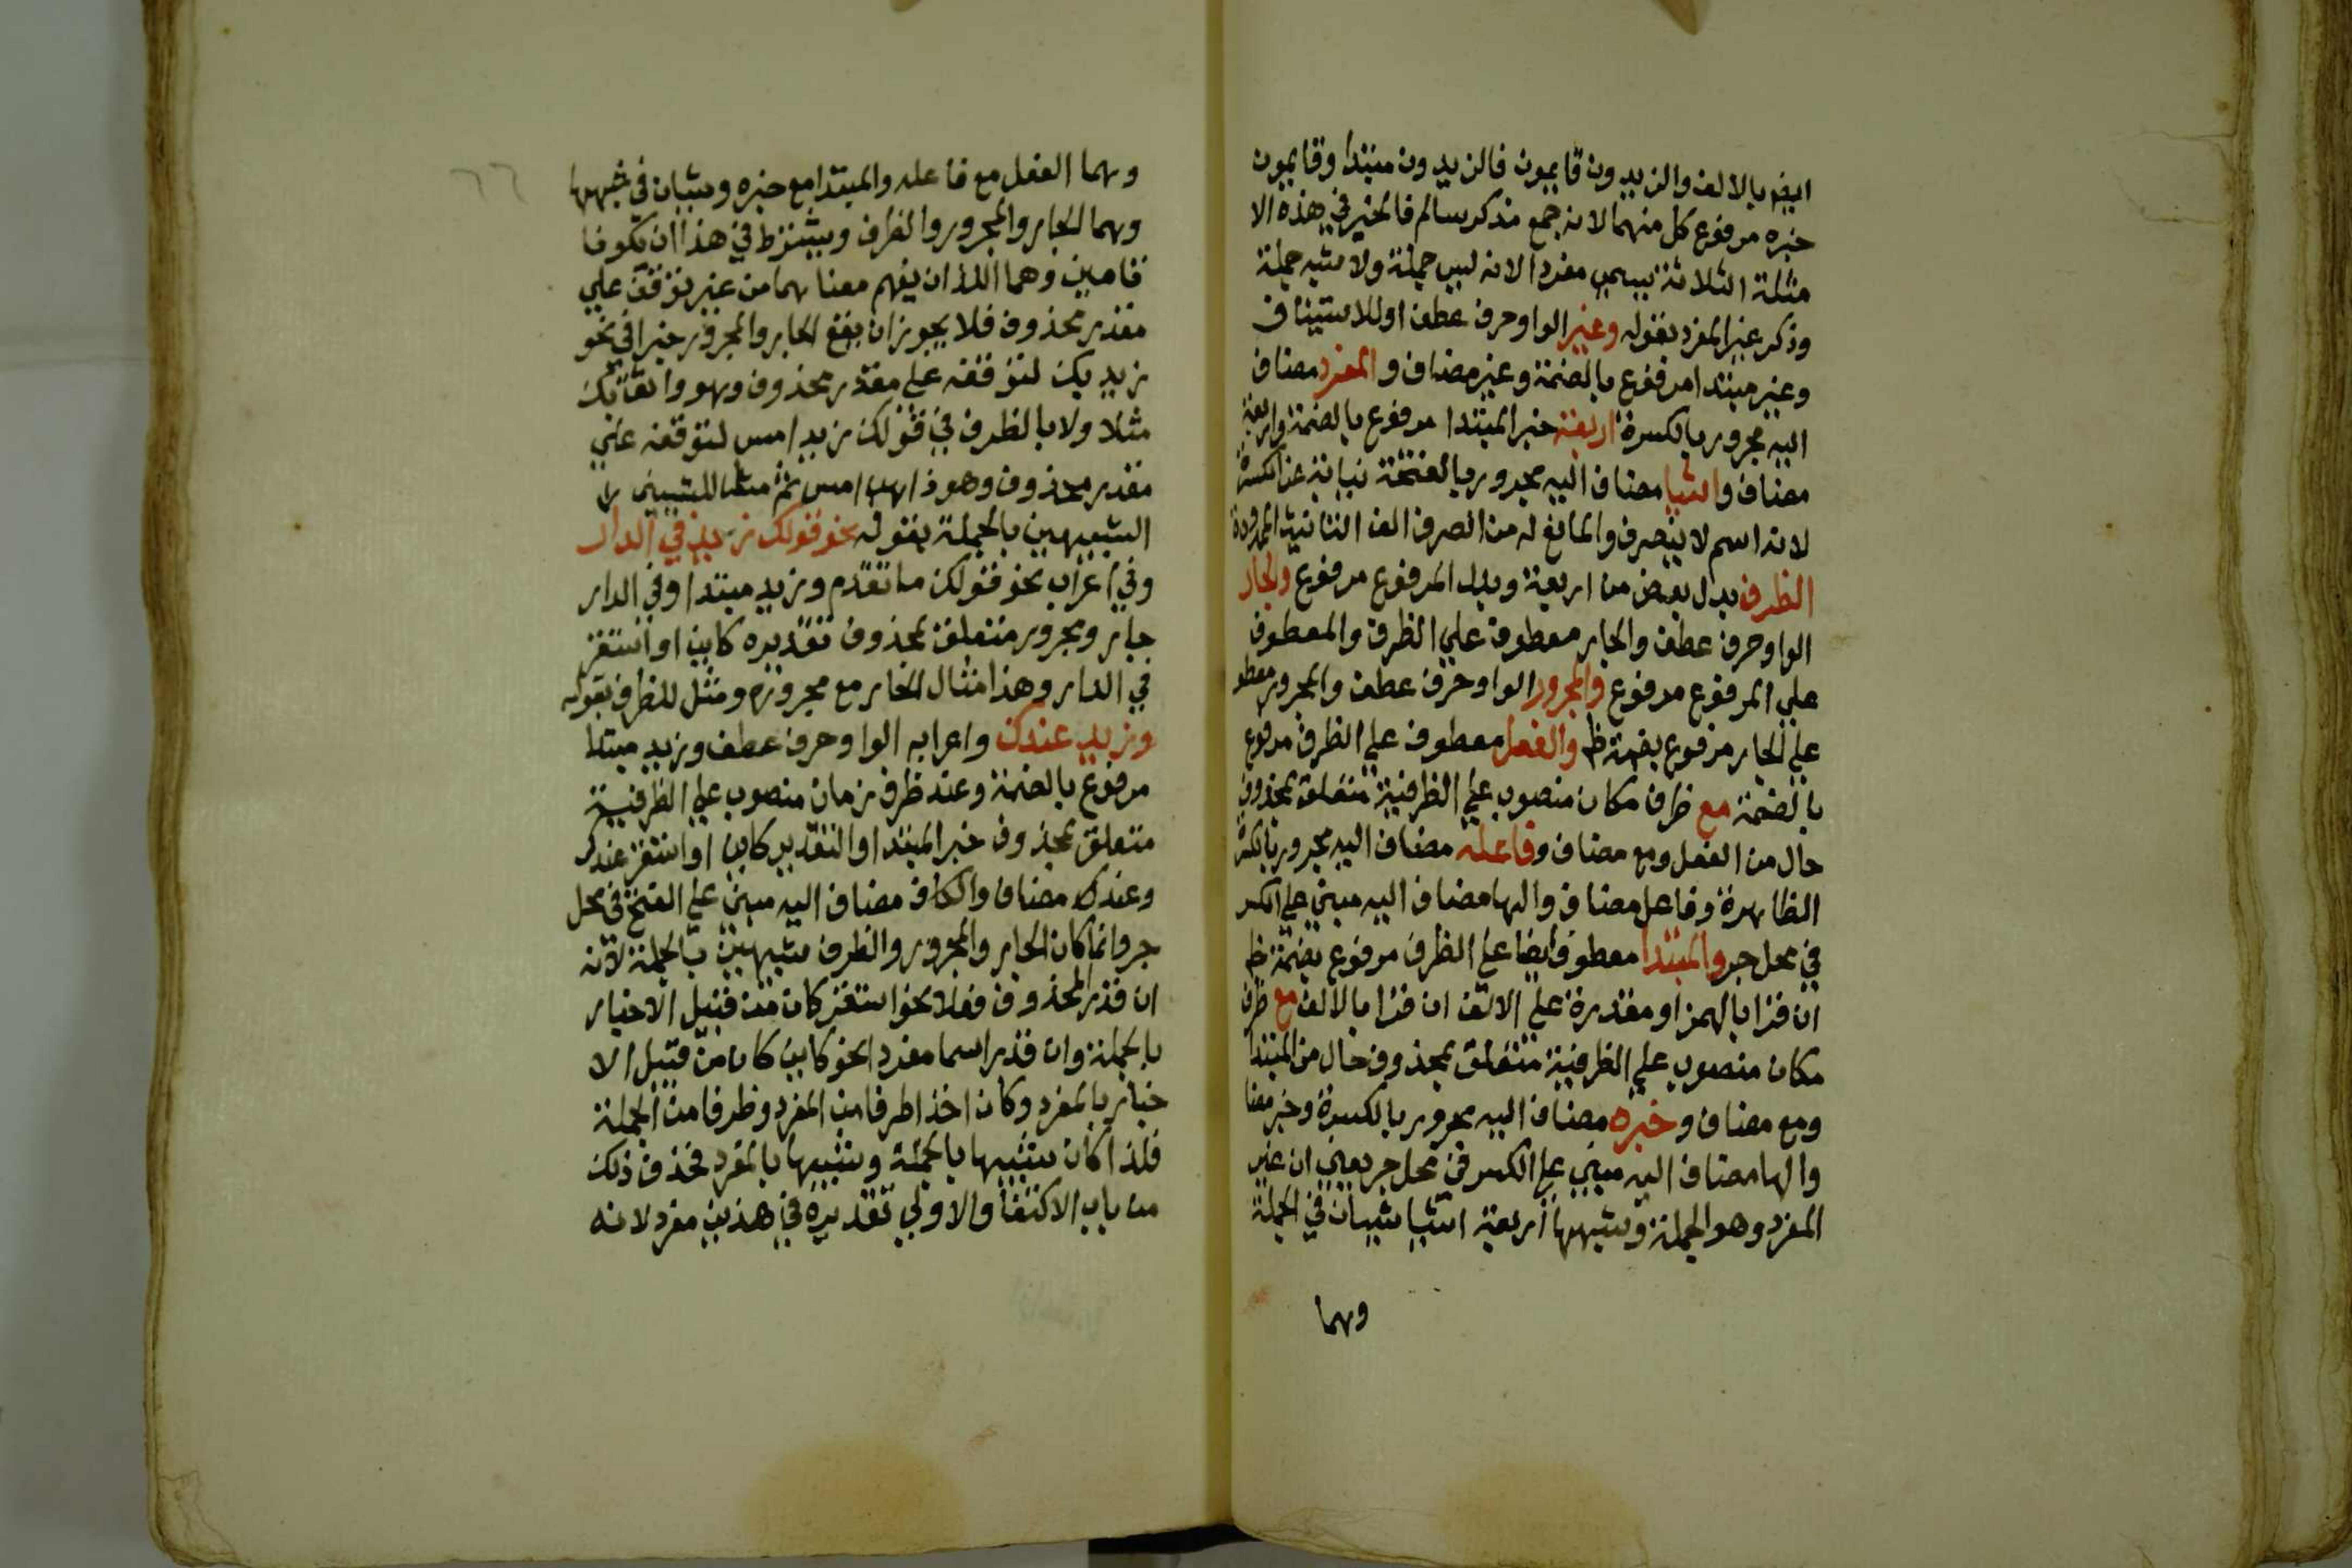 ايضا بالالف والزيدون قايمون فالزيدون مبتدا وقايمون
خبره مرفوع كل منهما لانه جمع مذكر سالم فالخبر في هذه الا
مثلة الثلاثة يسمى مفردا لانه ليس جملة ولا شبه جملة
وذكر غير المفرد بقوله وغير الواو حرف عطف او للاستيناف
وغير مبتدا مرفوع بالضمة وغير مضاف والمفرد مضاف
اليه مجرور بالكسرة اربعة خبر المبتدا مرفوع بالضمة واربعة
مضاف واشيا مضاف اليه مجرور بالفتحة نيابة عن الكسرة
لانه اسم لا ينصرف والمانع له من الصرف الف التانيث الممدودة
الظرف بدل بعض من اربعة وبدل المرفوع مرفوع والجار
الواو حرف عطف والجار معطوف علي الظرف والمعطوف
علي المرفوع مرفوع والمجرور الواو حرف عطف والمجرور معطو
علي الجار مرفوع بضمة ظ والفعل معطوف علي الظرف مرفوع
بالضمة مع ظرف مكان منصوب علي الظرفية متعلق بمحذوف
حال من الفعل ومع مضاف وفاعله مضاف اليه مجرور بالكسرة
الظاهرة وفاعل مضاف والها مضاف اليه مبني علي الكسر
في محل جر والمبتدا معطوف ايضا علي الظرف مرفوع بضمة ظ
ان قرا بالهمز او مقدرة علي الالف ان قرا بالالف مع ظرف
مكان منصوب علي الظرفية متعلق بمحذوف حال من المبتدا
ومع مضاف وخبره مضاف اليه مجرور بالكسرة وخبر مضا
والها مضاف اليه مبني علي الكسر في محل جر يعني ان غير
المفرد وهو الجملة وشبهها اربعة اشيا شيان في الجملة
وهما
٦٦
وهما الفعل مع فاعله والمبتدا مع خبره وشيان في شبهها
وهما الجار والمجرور والظرف ويشترط في هذا ان يكونا
تامين وهما اللذان يفهم معناهما من غير توقف علي
مقدر محذوف فلا يجوز ان يقع الجار والمجرور خبرا في نحو
زيد بك لتوقفه علي مقدر محذوف وهو واثق بك
مثلا ولا بالظرف في قولك زيد امس لتوقفه علي
مقدر محذوف وهو ذاهب امس ثم مثل للشيين
الشبيهين بالجملة بقوله نحو قولك زيد في الدار
وفي اعراب نحو قولك ما تقدم وزيد مبتدا وفي الدار
جار ومجرور متعلق بمحذوف تقديره كاين او استقر
في الدار وهذا مثال الجار مع مجروره ومثل للظرف بقوله
وزيد عندك واعرابه الواو حرف عطف وزيد مبتدا
مرفوع بالضمة وعند ظرف زمان منصوب علي الظرفية
متعلق بمحذوف خبر المبتدا والتقدير كاين او استقر عندك
وعندك مضاف والكاف مضاف اليه مبني علي الفتح في محل
جر وانما كان الجار والمجرور والظرف شبيهين بالجملة لانه
ان قدر المحذوف فعلا نحو استقر كان من قبيل الاخبار
بالجملة وان قدر اسما مفردا نحو كاين كان من قبيل الا
خبار بالمفرد وكان اخذا طرفا من المفرد وطرفا من الجملة
فلذا كان شبيها بالجملة وشبيها بالمفرد فحذف ذلك
من باب الاكتفا والاولي تقديره في هذين مفرد لانه